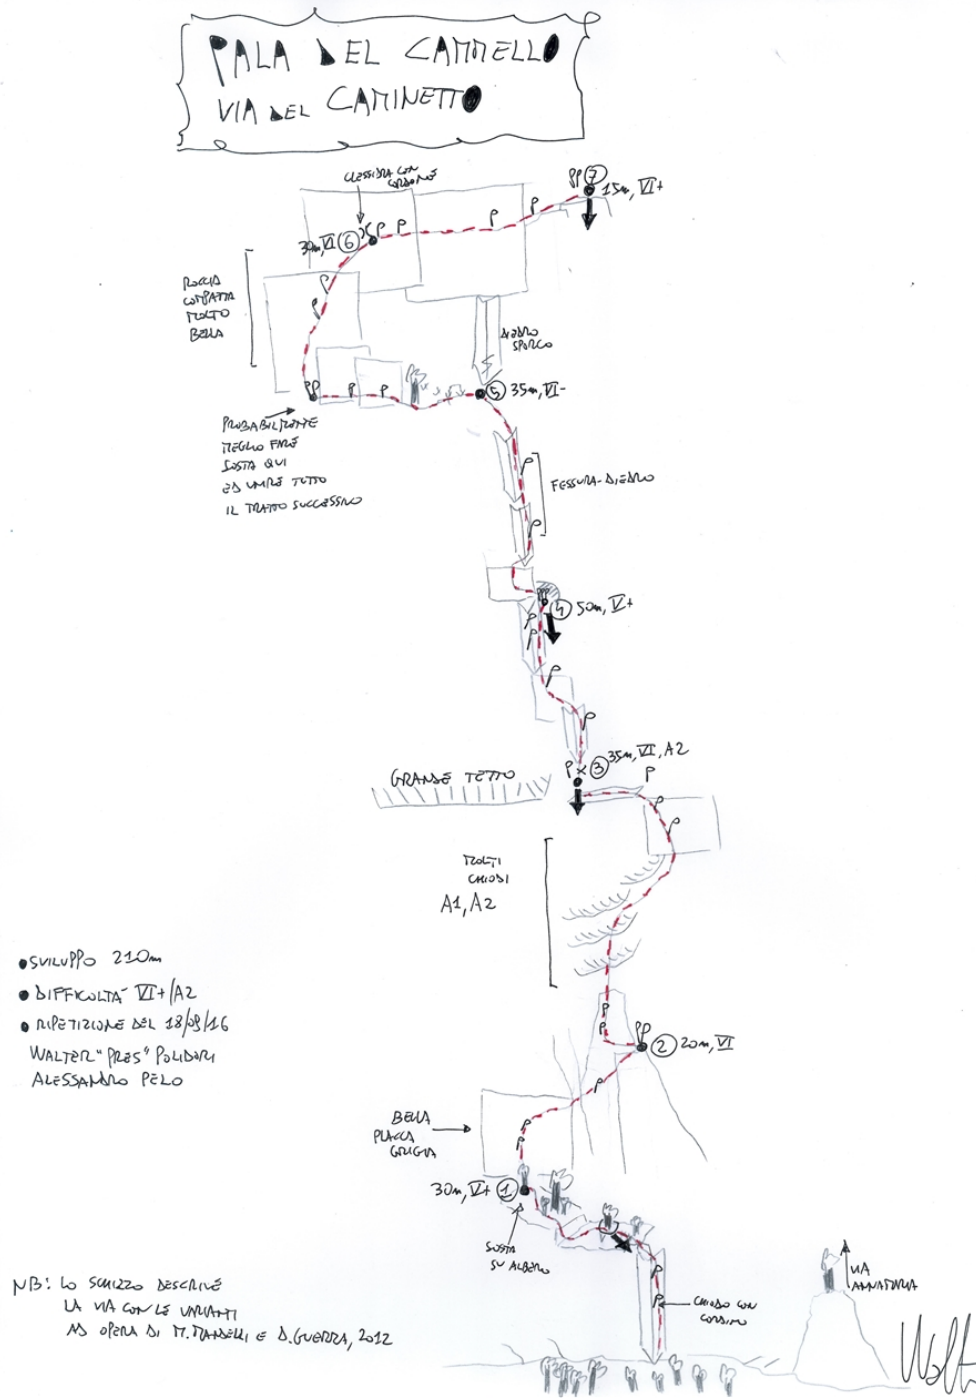 PALA DEL CAMMELLO
VIA DEL CAMINETTO
CLESSIDRA CON
CORDONE
PP 7
15m, VI+
P P P P
30m, VI 6
ROCCIA
COMPATTA
MOLTO
BELLA
P
P
DIEDRO
SPORCO
PP P P
5 35m, VI-
PROBABILMENTE
MEGLIO FARE
SOSTA QUI
ED UNIRE TUTTO
IL TRATTO SUCCESSIVO
P
FESSURA-DIEDRO
P
4 50m, V+
P
P
P
P
P 3 35m, VI, A2
P
GRANDE TETTO
P
P
MOLTI
CHIODI
A1, A2
SVILUPPO 210m
DIFFICOLTÀ VI+/A2
RIPETIZIONE DEL 18/09/16
WALTER "PRES" POLIDORI
ALESSANDRO PELO
P
P PP
2 20m, VI
P
BELLA
PLACCA
GRIGIA
P
P
30m, V+ 1
SOSTA
SU ALBERO
P
P
CHIODO CON
CORDINO
VIA
ANNAMARIA
NB: LO SCHIZZO DESCRIVE
LA VIA CON LE VARIANTI
AD OPERA DI M.MANDELLI E D.GUERRA, 2012
Walt